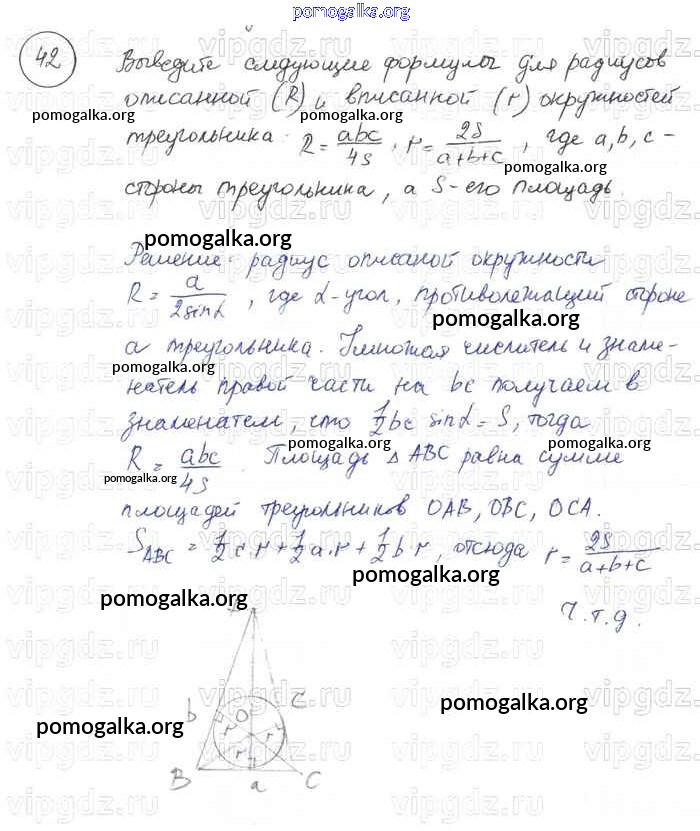 pomogalka.org
42
Выведите следующие формулы для радиусов
описанной (R) и вписанной (r) окружностей
pomogalka.org pomogalka.org pomogalka.org
треугольника: R = abc/4s, r = 2S/a+b+c, где a, b, c -
pomogalka.org
стороны треугольника, а S - его площадь.
pomogalka.org
Решение: радиус описаной окружности
R = a/2sinα, где α - угол, противолежащий стороне
pomogalka.org
а треугольника. Умножая числитель и знаме-
pomogalka.org
натель правой части на bc получаем в
знаменателе, что 1/2 bc sinα = S, тогда
pomogalka.org pomogalka.org
R = abc/4s. Площадь △ ABC равна сумме
pomogalka.org
площадей треугольников OAB, OBC, OCA.
S ABC = 1/2 c·r + 1/2 a·r + 1/2 b r, отсюда r = 2S/a+b+c
pomogalka.org
pomogalka.org
Ч.т.д.
b O c
pomogalka.org pomogalka.org
r r r
B a C
vipgdz.ru